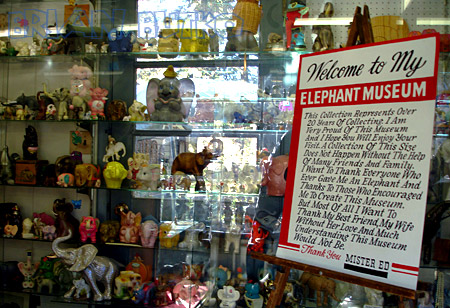 Welcome to My
ELEPHANT MUSEUM
This Collection Represents Over
20 Years Of Collecting I Am
Very Proud Of This Museum
And I Hope You Will Enjoy Your
Visit. A Collection Of This Size
Does Not Happen Without The Help
Of Many Friends And Families. I
Want To Thank Everyone Who
Ever Gave Me An Elephant And
Thanks To Those Who Encouraged
Me To Create This Museum.
But Most Of All I Want To
Thank My Best Friend, My Wife
Without Her Love And Much
Understanding This Museum
Would Not Be.
Thank You
MISTER ED